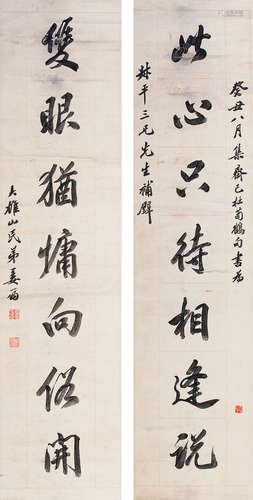 癸丑八月集齊己杜荀鶴句書為
此心只待相逢說
林平三兄先生補壁
雙眼猶慵向俗開
大雄山民弟姜筠